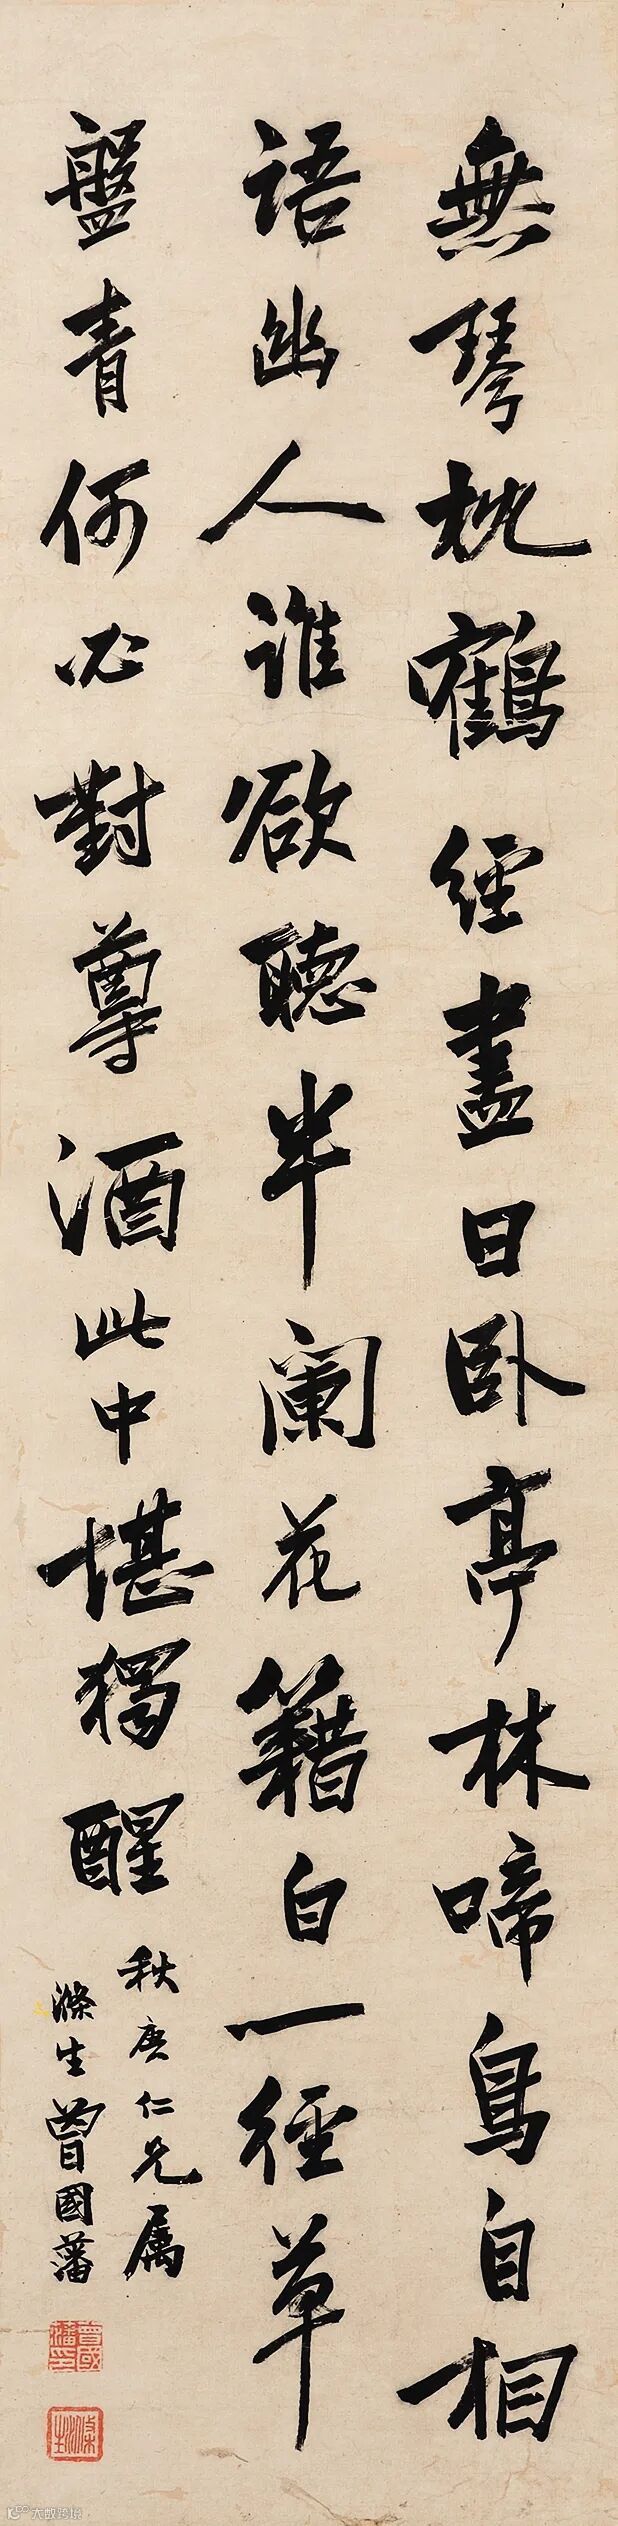 無琴枕鶴經盡日臥亭林啼鳥自相
語幽人誰欲聽半闌花籍白一徑草
盤青何必對尊酒此中堪獨醒
秋庚仁兄屬
滌生曾國藩
曾國藩印
滌生
大数跨境